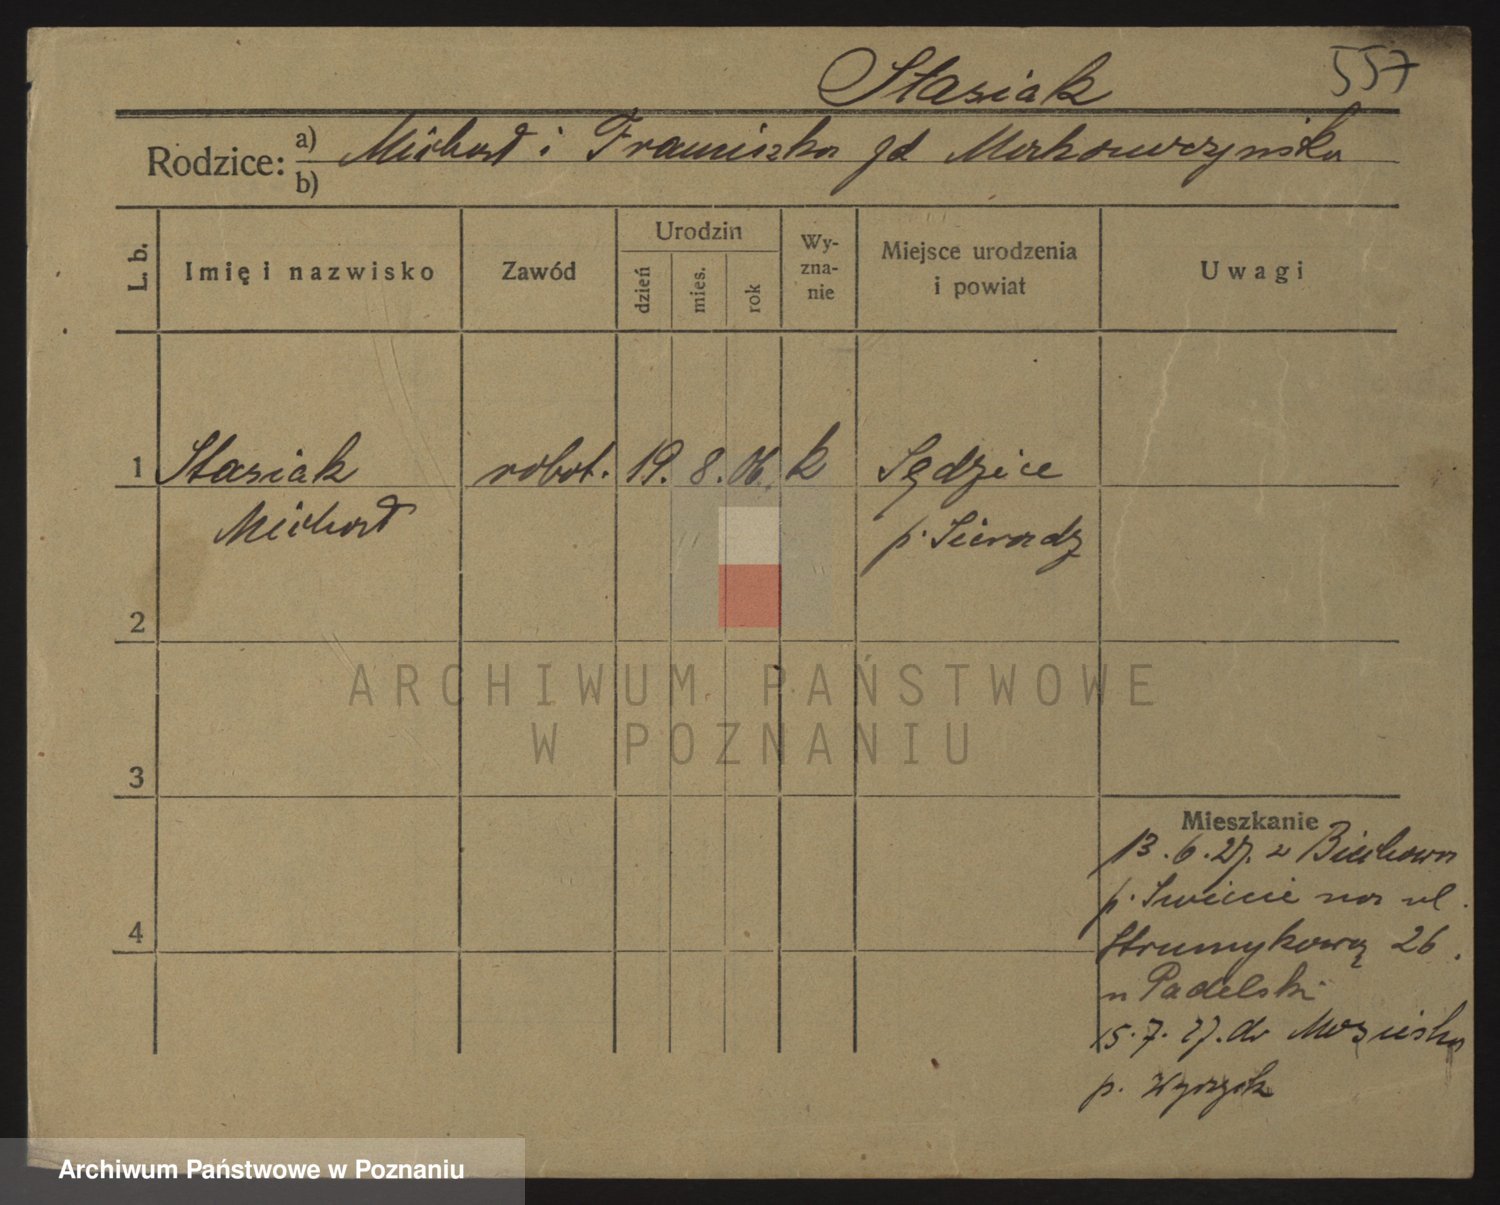 557
Stasiak
Rodzice: a) Michał i Franciszka gd Markowczyńska
b)
L. b.
Imię i nazwisko
Zawód
Urodzin
dzień
mies.
rok
Wy-
zna-
nie
Miejsce urodzenia
i powiat
Uwagi
1 Stasiak robot. 19. 8. 06. k Sędzice
Michał p. Sieradz
2
3
4
Mieszkanie
13.6.27. z Biechowa
p. Swiecie na ul.
Strumykową 26.
u Padelski
15.7.27. do
p. Wyrzysk
ARCHIWUM PAŃSTWOWE
W POZNANIU
Archiwum Państwowe w Poznaniu